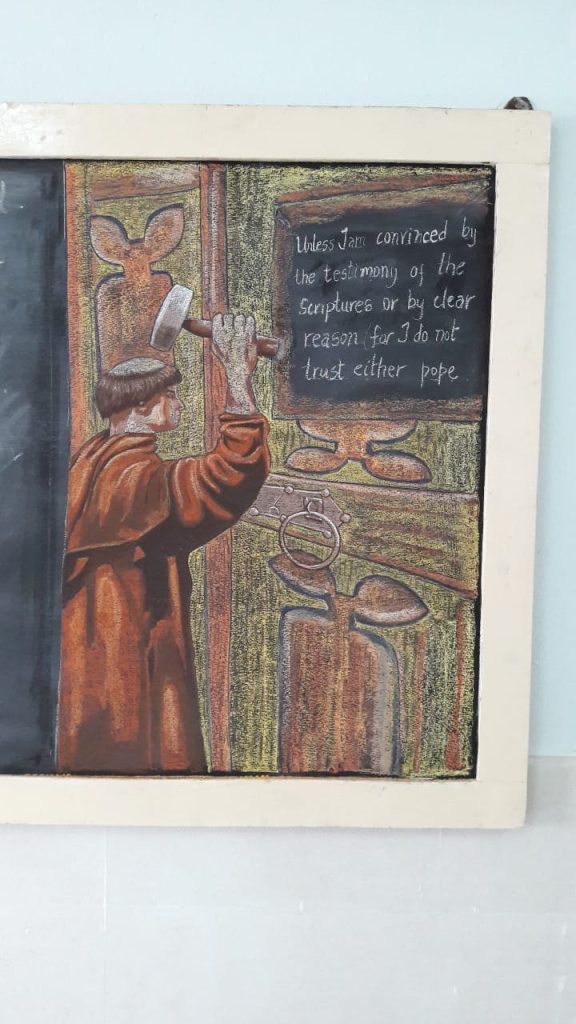 Unless I am convinced by
the testimony of the
Scriptures or by clear
reason (for I do not
trust either pope